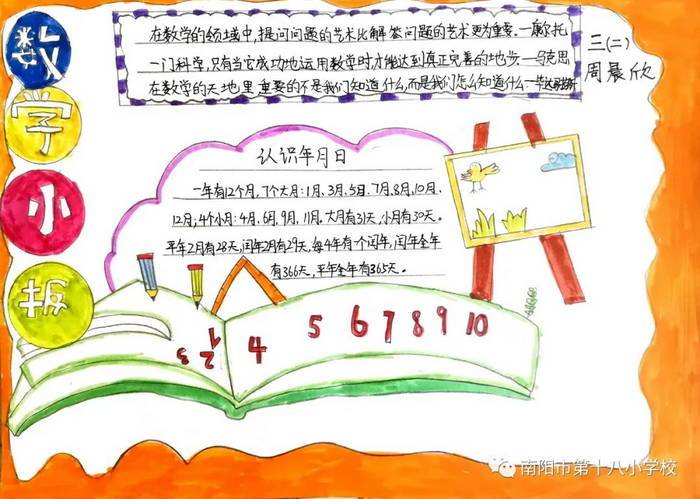 数
学
小
报
在数学的领域中,提问问题的艺术比解答问题的艺术更为重要。一康尔托
一门科学,只有当它成功地运用数学时,才能达到真正完善的地步一马克思
在数学的天地里,重要的不是我们知道什么,而是我们怎么知道什么.一毕达哥拉斯
三(二)
周晨欣
认识年月日
一年有12个月,7个大月:1月、3月、5月、7月、8月、10月、
12月,4个小月:4月、6月、9月、11月,大月有31天,小月有30天。
平年2月有28天,闰年2月有29天,每4年有一个闰年,闰年全年
有366天,平年全年有365天。
1 2 3 4 5 6 7 8 9 10
南阳市第十八小学校